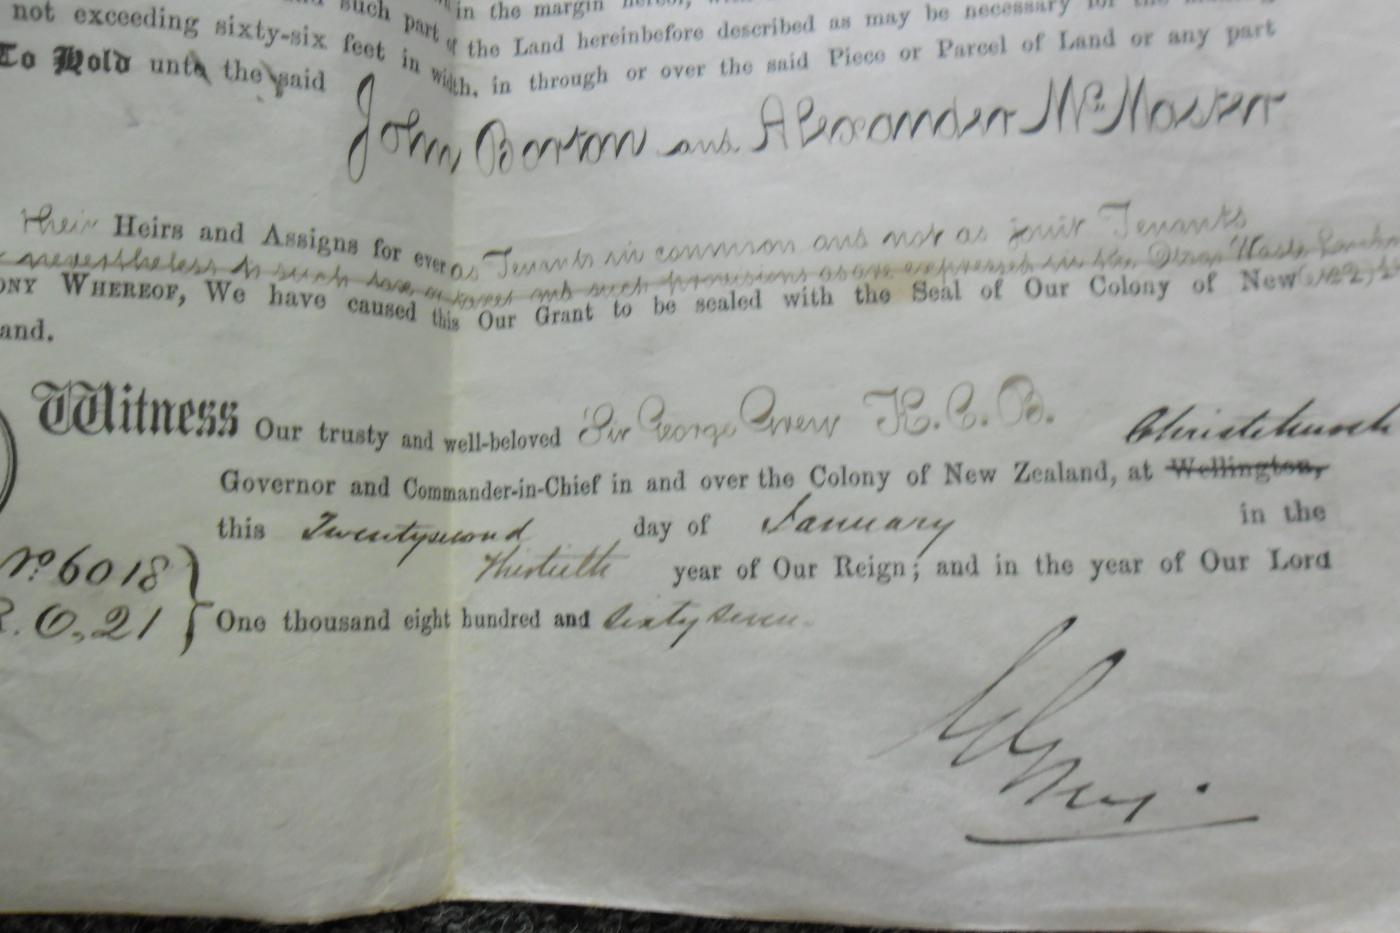 such part in the margin hereof,
not exceeding sixty-six feet in width, in through or over the said Piece or Parcel of Land or any part
of the Land hereinbefore described as may be necessary for the
To Hold unto the said
John Borton and Alexander McMaster
their Heirs and Assigns for ever as Tenants in common and not as joint Tenants
nevertheless to such and such provisions as are expressed in the Otago Waste Lands
ONY WHEREOF, We have caused this Our Grant to be sealed with the Seal of Our Colony of New
and.
Witness Our trusty and well-beloved Sir George Grey K.C.B. Christchurch
Governor and Commander-in-Chief in and over the Colony of New Zealand, at Wellington,
this Twentysecond day of January in the
Thirtieth year of Our Reign; and in the year of Our Lord
No 6018
R. O, 21
One thousand eight hundred and sixty seven.
G Grey.